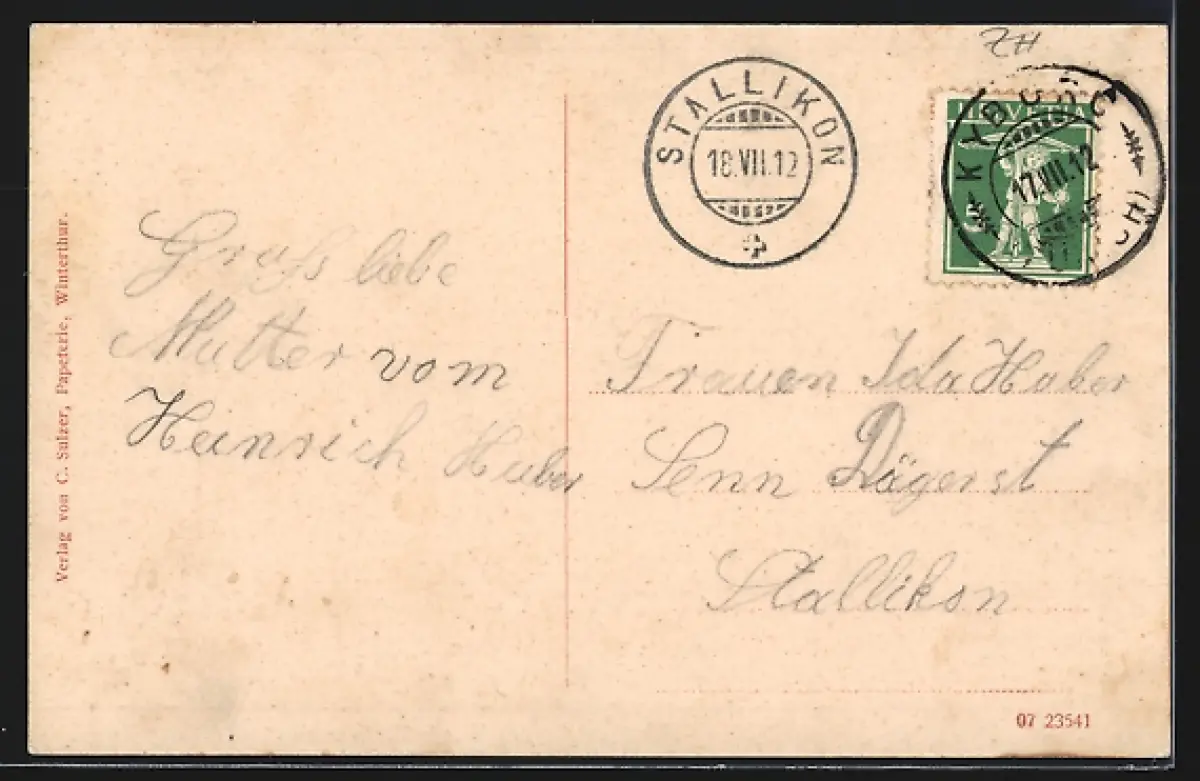 ZH
STALLIKON
18.VII.12
HELVETIA
5
KYBURG
17.VII.12
Verlag von C. Sulzer, Papeterie, Winterthur.
Gruß liebe
Mutter vom
Heinrich Huber
Frauen Ida Huber
Senn Dägerst
Stallikon
07 23541